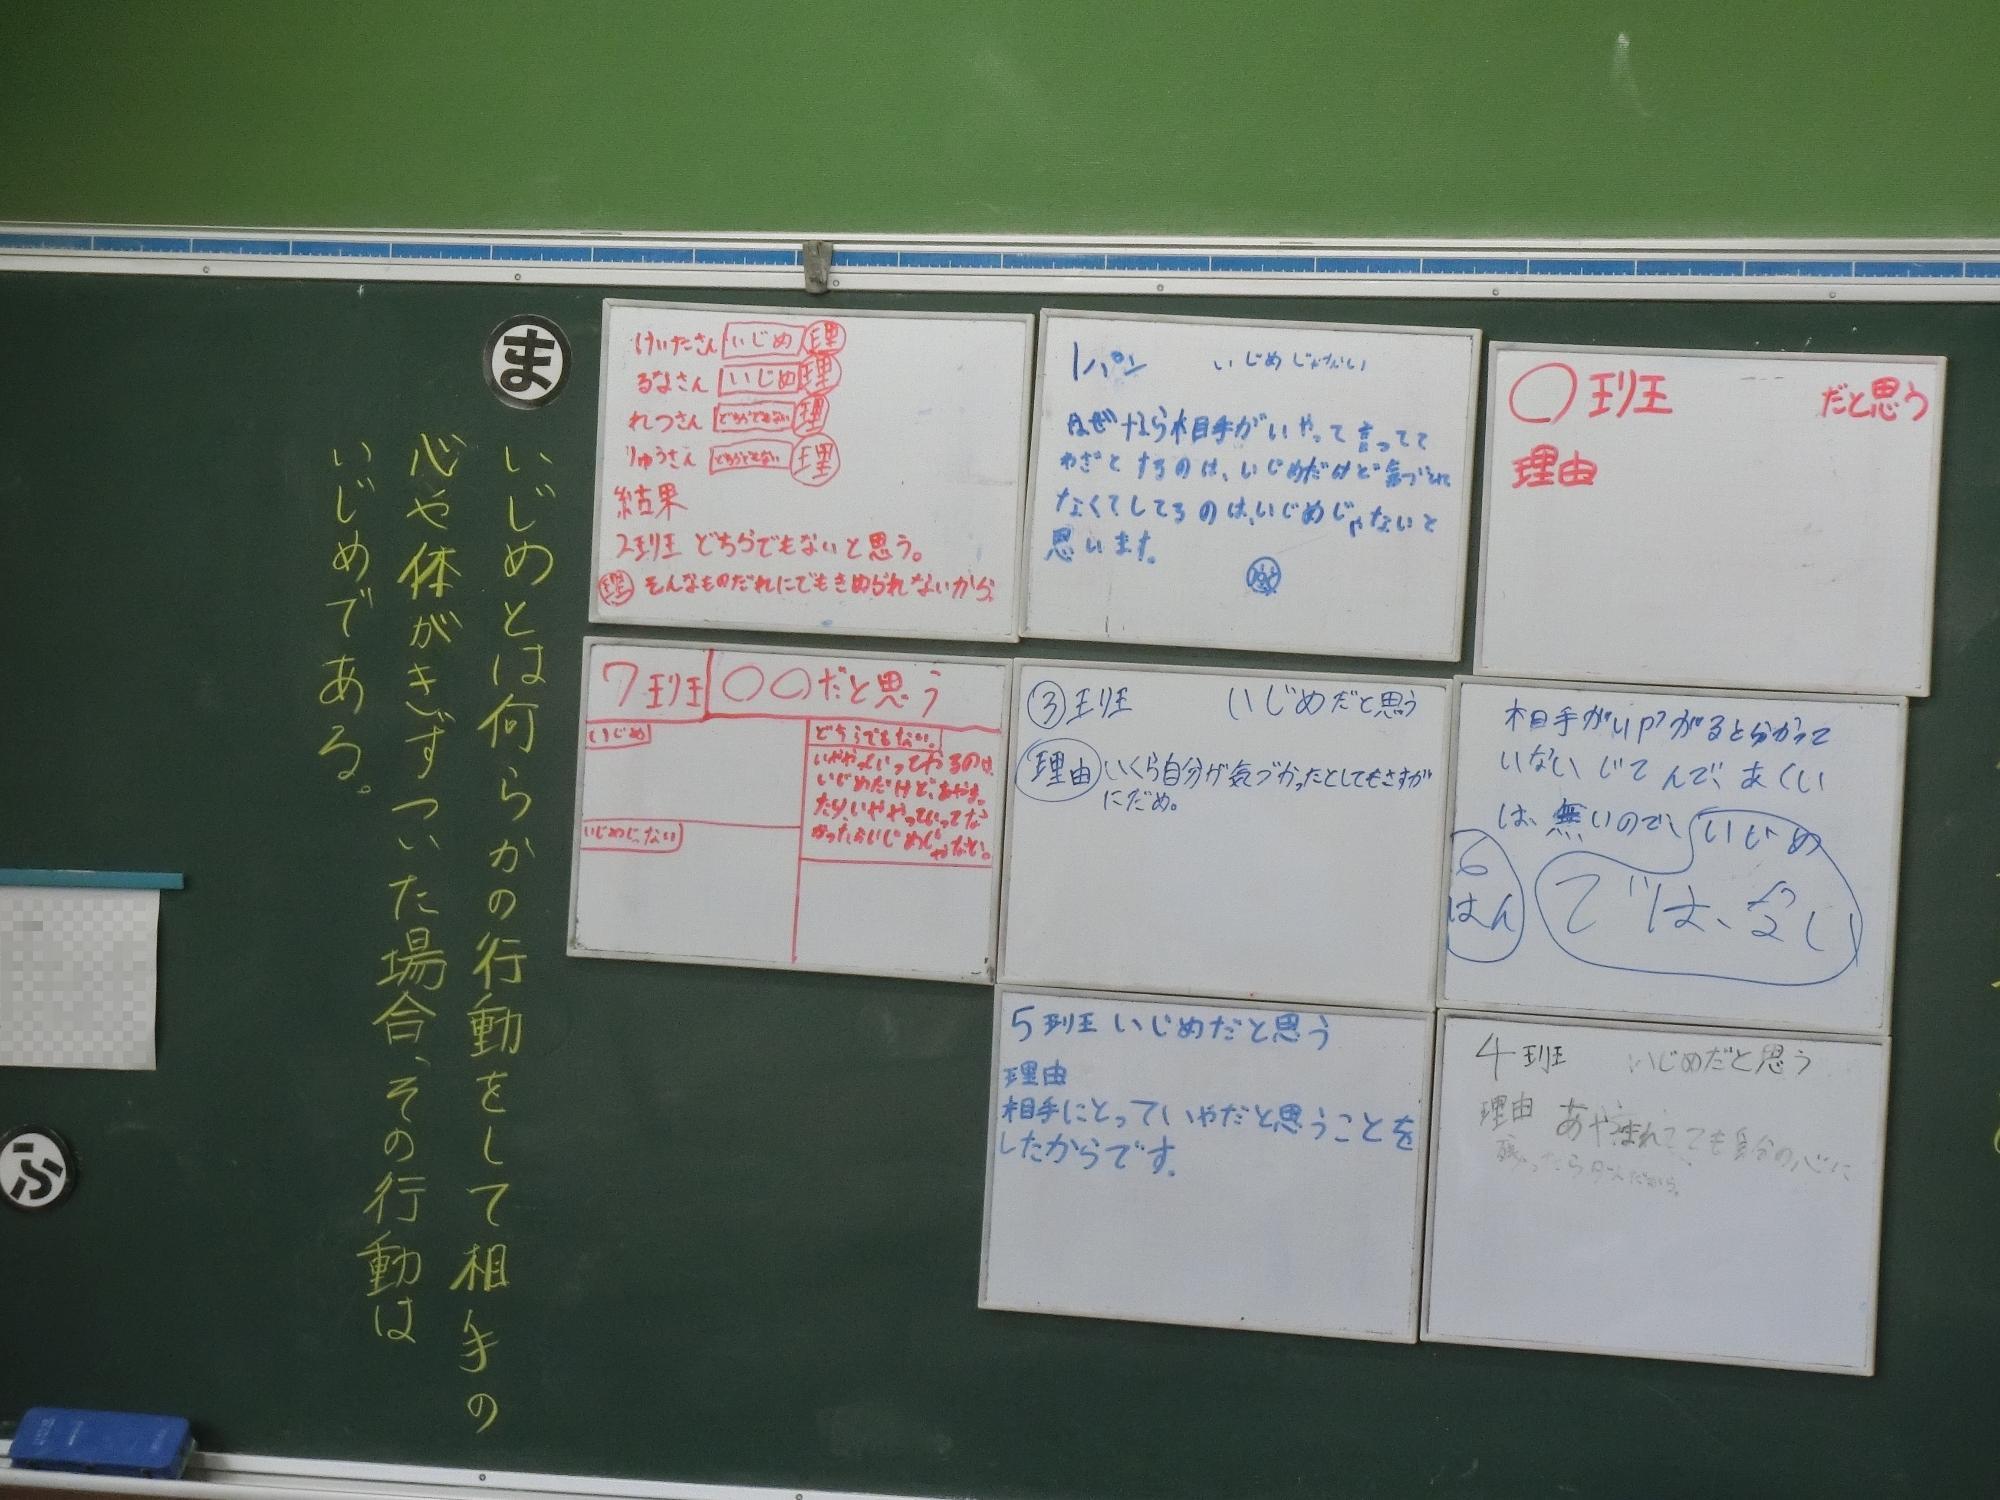 ま
いじめとは何らかの行動をして相手の
心や体がきずついた場合、その行動は
いじめである。
ふ
けいたさん いじめ 理
るなさん いじめ 理
れつさん どちらでもない 理
りゅうさん どちらでもない 理
結果
2班 どちらでもないと思う。
理 そんなものだれにでもきめられないから。
1パン いじめじゃない
なぜなら相手がいやって言ってて
わざとするのは、いじめだけど気づかれ
なくてしてるのは、いじめじゃないと
思います。
〇班 だと思う
理由
7班 〇〇だと思う
いじめ
いじめじゃない
どちらでもない。
いややといってやるのは、
いじめだけど、あやま
たり、いややっていってな
かったらいじめじゃない。
③班 いじめだと思う
理由 いくら自分が気づかったとしてもさすが
にだめ。
相手がいやがると分かって
いない じてんで、あくい
は、無いので、いじめ
ではない
6はん
5班 いじめだと思う
理由
相手にとっていやだと思うことを
したからです。
4班 いじめだと思う
理由 あやまれてても自分の心に